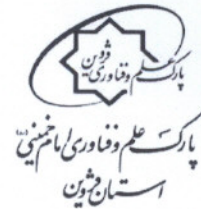 پارک علم و فناوری قزوین
پارک علم و فناوری امام خمینی (ره)
استان قزوین